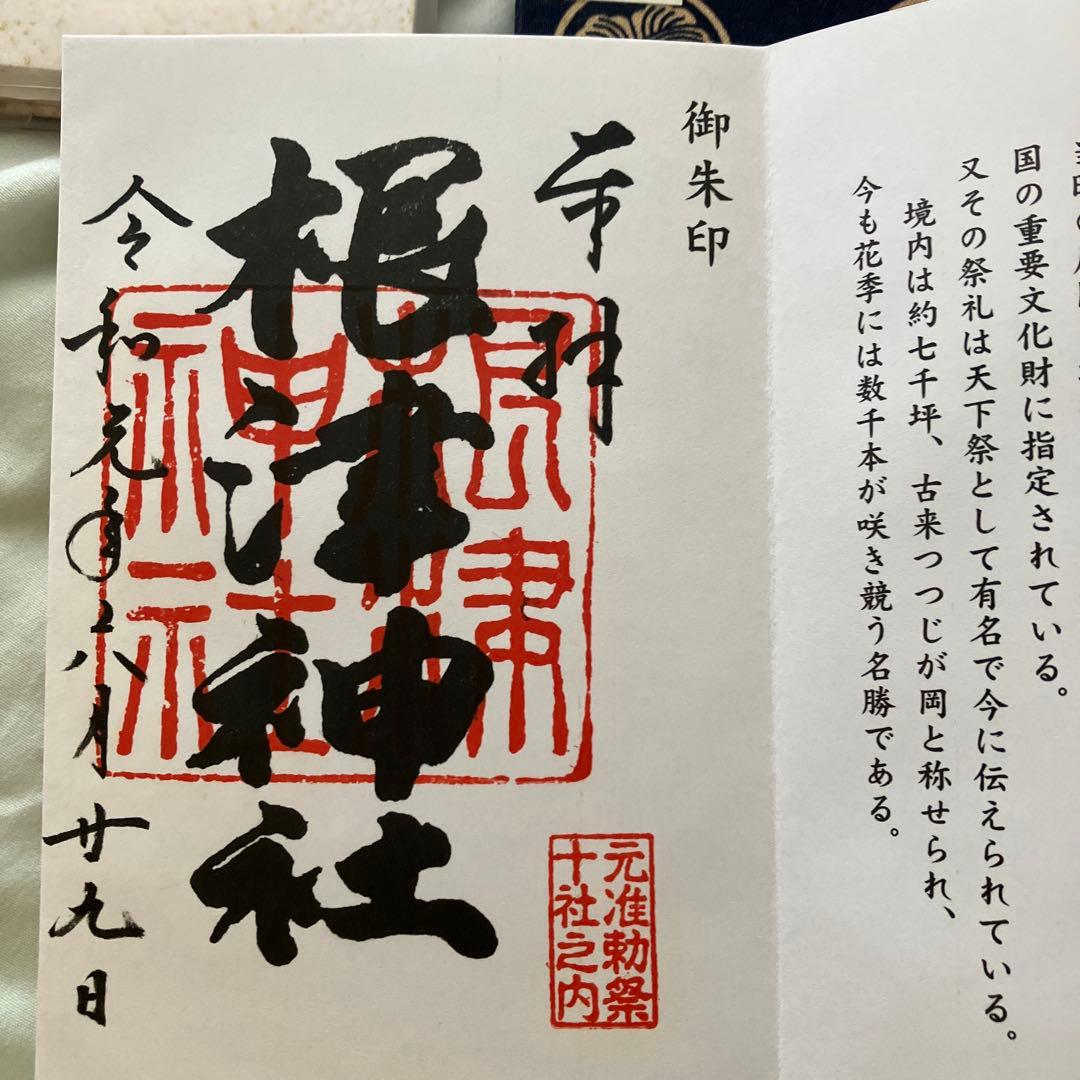 国の重要文化財に指定されている。
又その祭礼は天下祭として有名で今に伝えられている。
境内は約七千坪、古来つつじが岡と称せられ、
今も花季には数千本が咲き競う名勝である。
御朱印
奉拝
根津神社
根津
神社
元准勅祭
十社之内
令和元年八月廿九日